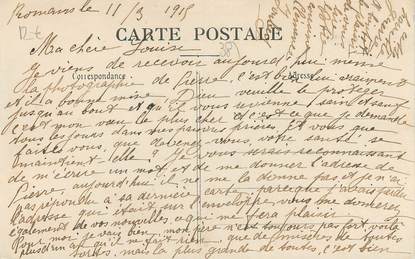 Romans le 11/3 1915
CARTE POSTALE
Ma chère Louise
Je viens de recevoir aujourd'hui même
Correspondance
Adresse
la photographie de Pierre, c'est bien vraiment
et il a bonne mine. Dieu veuille le protéger
jusqu'au bout et qu'il vous revienne sain et sauf
c'est mon vœu le plus cher c'est ce que je demande
tous les jours dans mes pauvres prières. Et vous que
faites vous, que devenez-vous, votre santé se
maintient-elle? Je vous serais reconnaissant
de m'écrire un mot et de me donner l'adresse de
Pierre, aujourd'hui, il ne me la donne pas et je n'ai
pas répondu à sa dernière carte, parce que j'avais perdu
l'adresse qui était sur l'enveloppe, vous me donnerez
également de vos nouvelles, ce qui me fera plaisir.
Pour moi je vais bien, mon père n'est toujours pas fort, voilà
plus d'un an qu'il ne fait rien que de misères de toutes
sortes, mais la plus grande de toutes, c'est bien